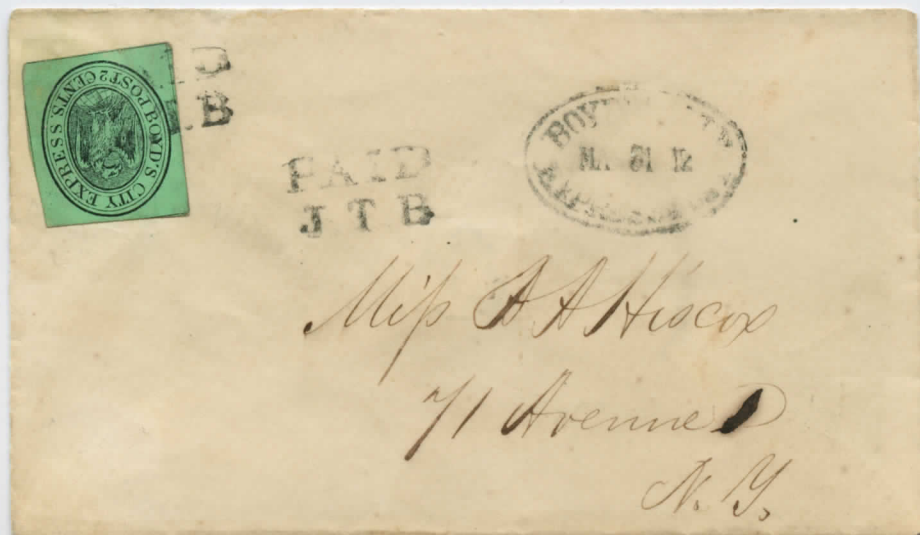 BOYD'S CITY EXPRESS POST 2 CENTS.
PAID
J T B
31 12
Miſs A A Hiscox
71 Avenue D
N. Y.